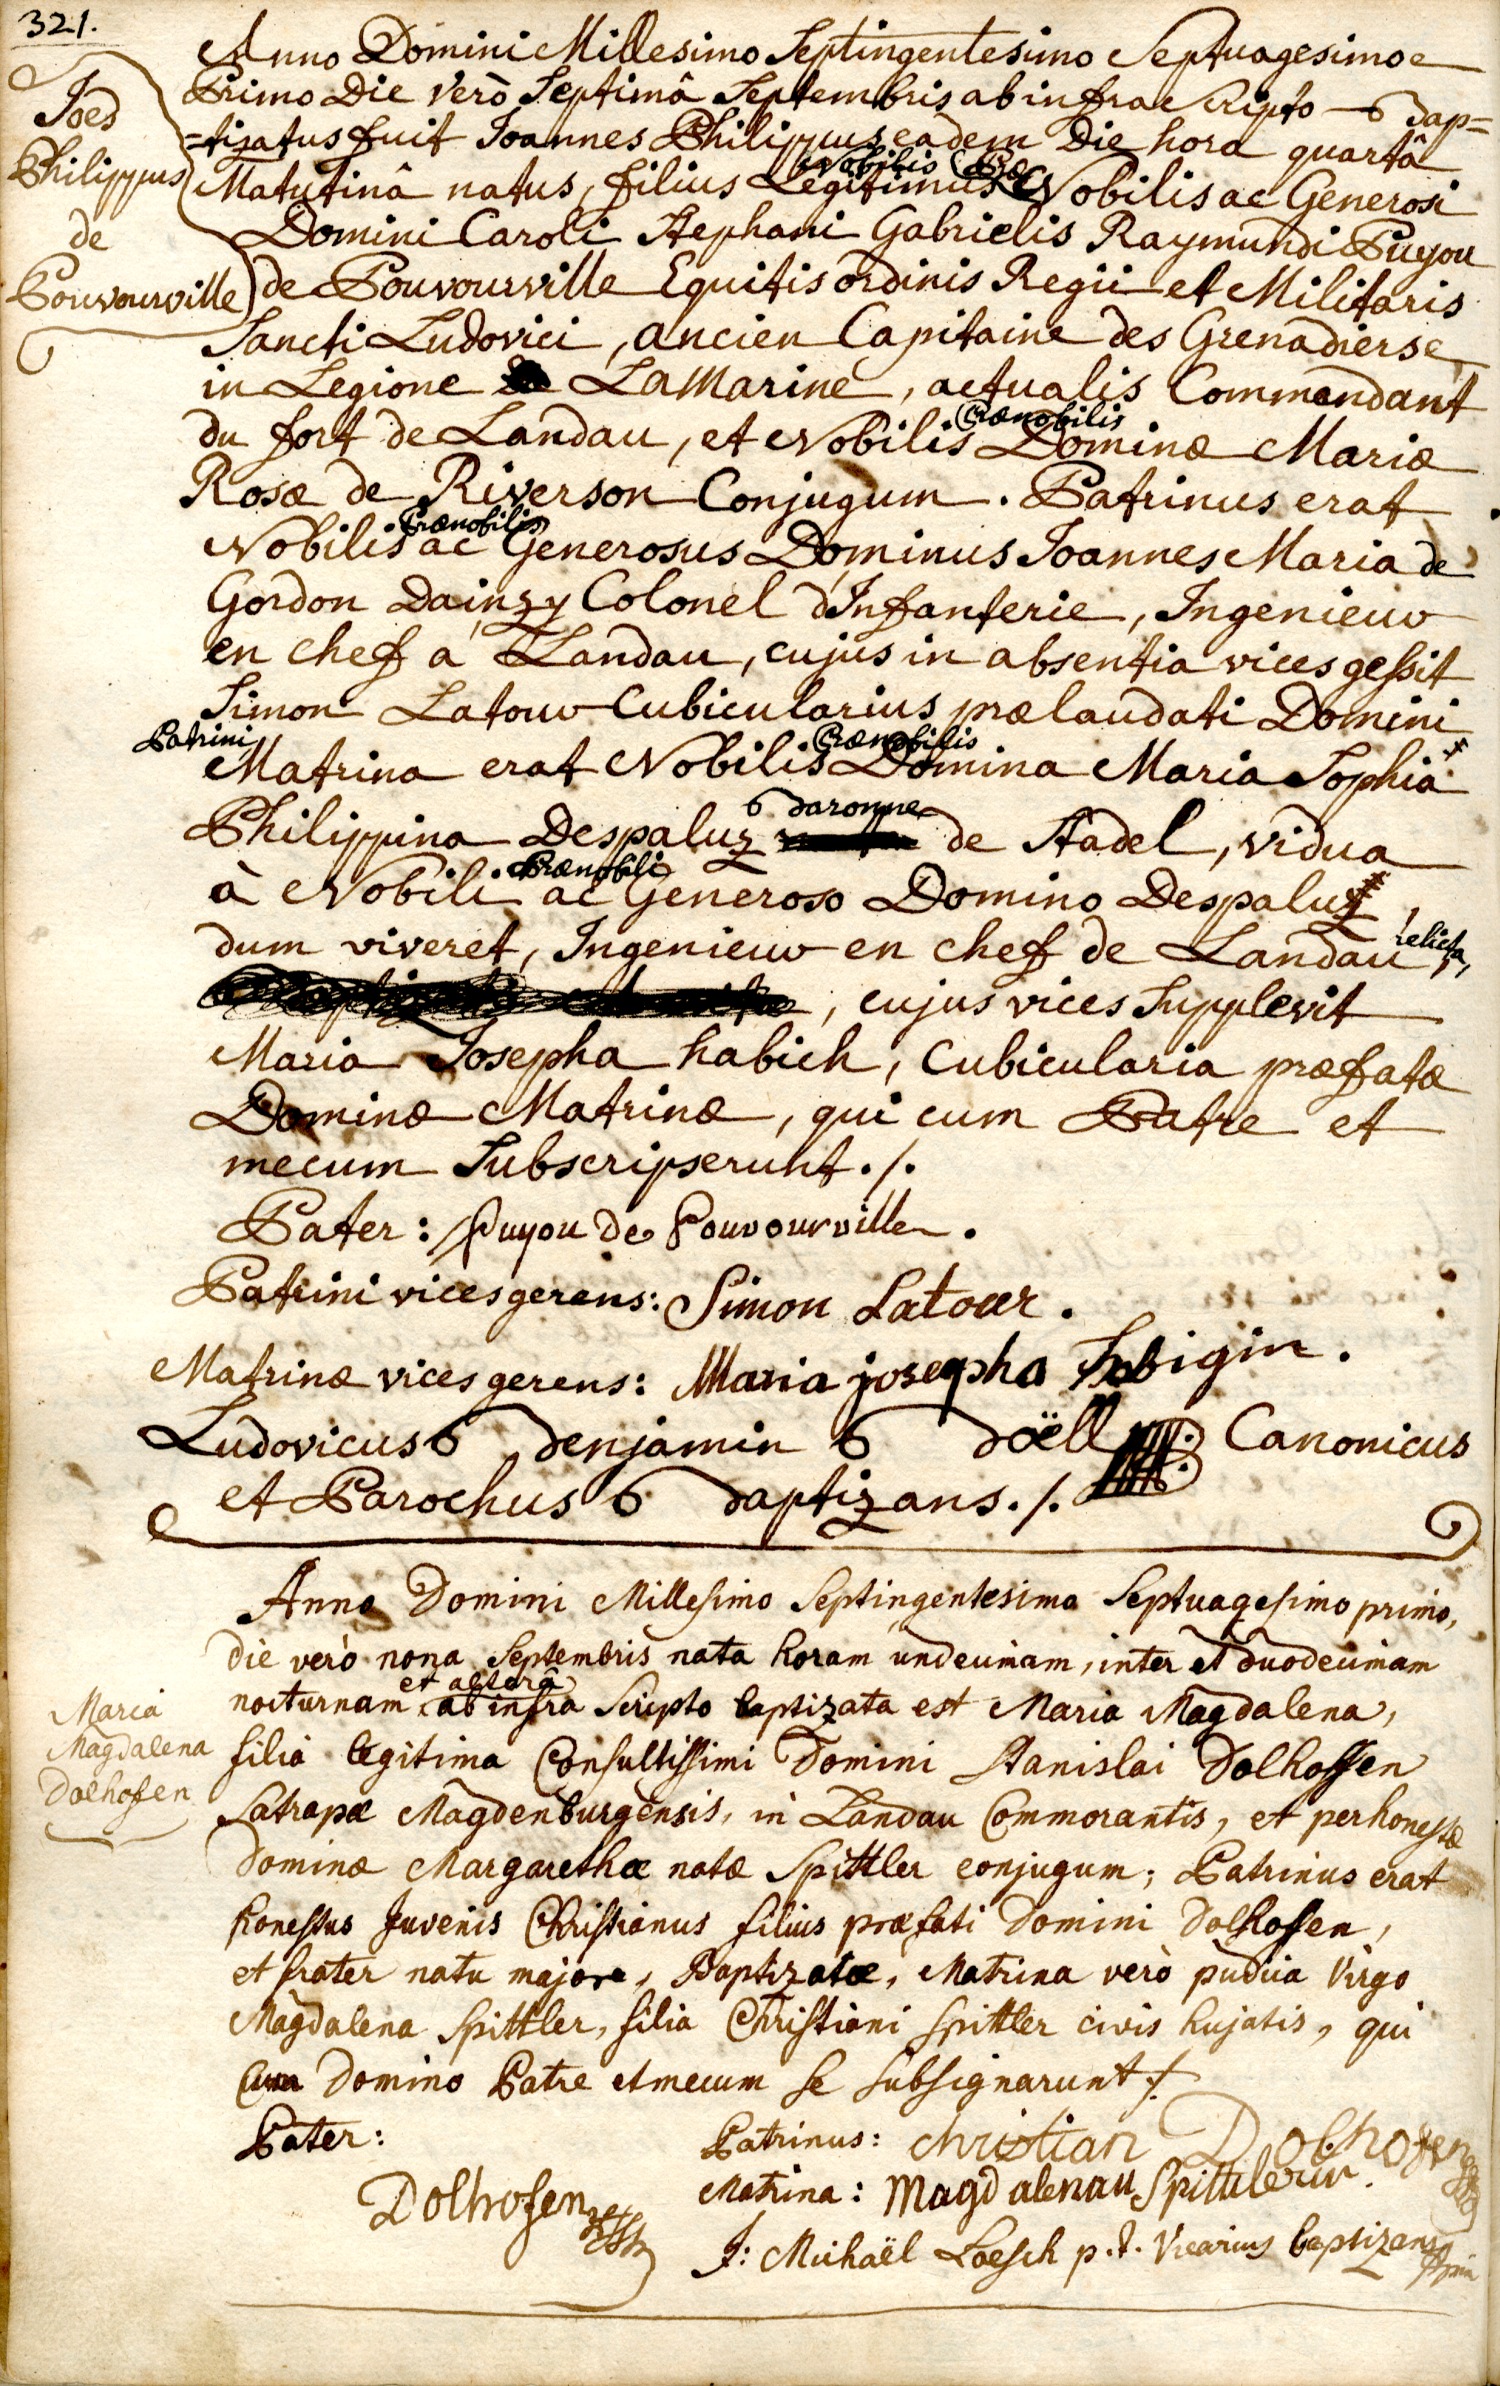 321.
Joes
Philippus
de
Pouvourville
Anno Domini Millesimo Septingentesimo Septuagesimo
Primo Die Verò Septimâ Septembris ab infra scripto Bap=
=tizatus fuit Joannes Philippus eadem Die hora quartâ
Matutinâ natus, filius Legitimus Nobilis ac Generosi
Domini Caroli Stephani Gabrielis Raymundi Puyou
de Pouvourville Equitis ordinis Regii et Militaris
Sancti Ludovici, ancien Capitaine des Grenadiers
in Legione La Marine, actualis Commendant
du fort de Landau, et Nobilis Prænobilis Dominæ Mariæ
Rosæ de Riverson Conjugum. Patrinus erat
Nobilis Prænobilis ac Generosus Dominus Joannes Maria de
Gordon Dainzy Colonel d'Infanterie, Ingenieur
en chef à Landau, cujus in absentia vices gessit
Simon Latour Cubicularius prælaudati Domini
Patrini
Matrina erat Nobilis Prænobilis Domina Maria Sophia
Philippina Despaluz Baronne de Stadel, vidua
à Nobili Prænobili ac Generoso Domino Despaluz,
dum viveret, Ingenieur en chef de Landau relicta,
, cujus vices Supplevit
Maria Josepha habich, Cubicularia præfatæ
Dominæ Matrinæ, qui cum Patre et
mecum Subscripserunt ./.
Pater: Puyou de Pouvourville.
Patrini vices gerens: Simon Latour.
Matrinæ vices gerens: Maria josepha Habigin.
Ludovicus Benjamin Boëll Canonicus
et Parochus Baptizans ./.
Maria
Magdalena
Dolhofen
Anno Domini Millesimo Septingentesimo Septuagesimo primo,
die verò nona Septembris nata horam undecimam, inter et duodecimam
nocturnam et alterâ ab infra Scripto baptizata est Maria Magdalena,
filia legitima Consultissimi Domini Stanislai Dolhoffen
Satrapæ Magdenburgensis, in Landau Commorantis, et perhonestæ
Dominæ Margarethæ natæ Spittler conjugum; Patrinus erat
honestus Juvenis Christianus filius præfati Domini Dolhofen,
et frater natu major, Baptizatæ, Matrina verò pudica Virgo
Magdalena Spittler, filia Christiani Spittler civis hujatis, qui
cum Domino Patre et mecum se subsignarunt ./.
Pater:
Dolhofen
Patrinus: christian Dolhofen
Matrina: Magdalenau Spittlerin.
J: Michaël Loesch p.t. Vicarius baptizans